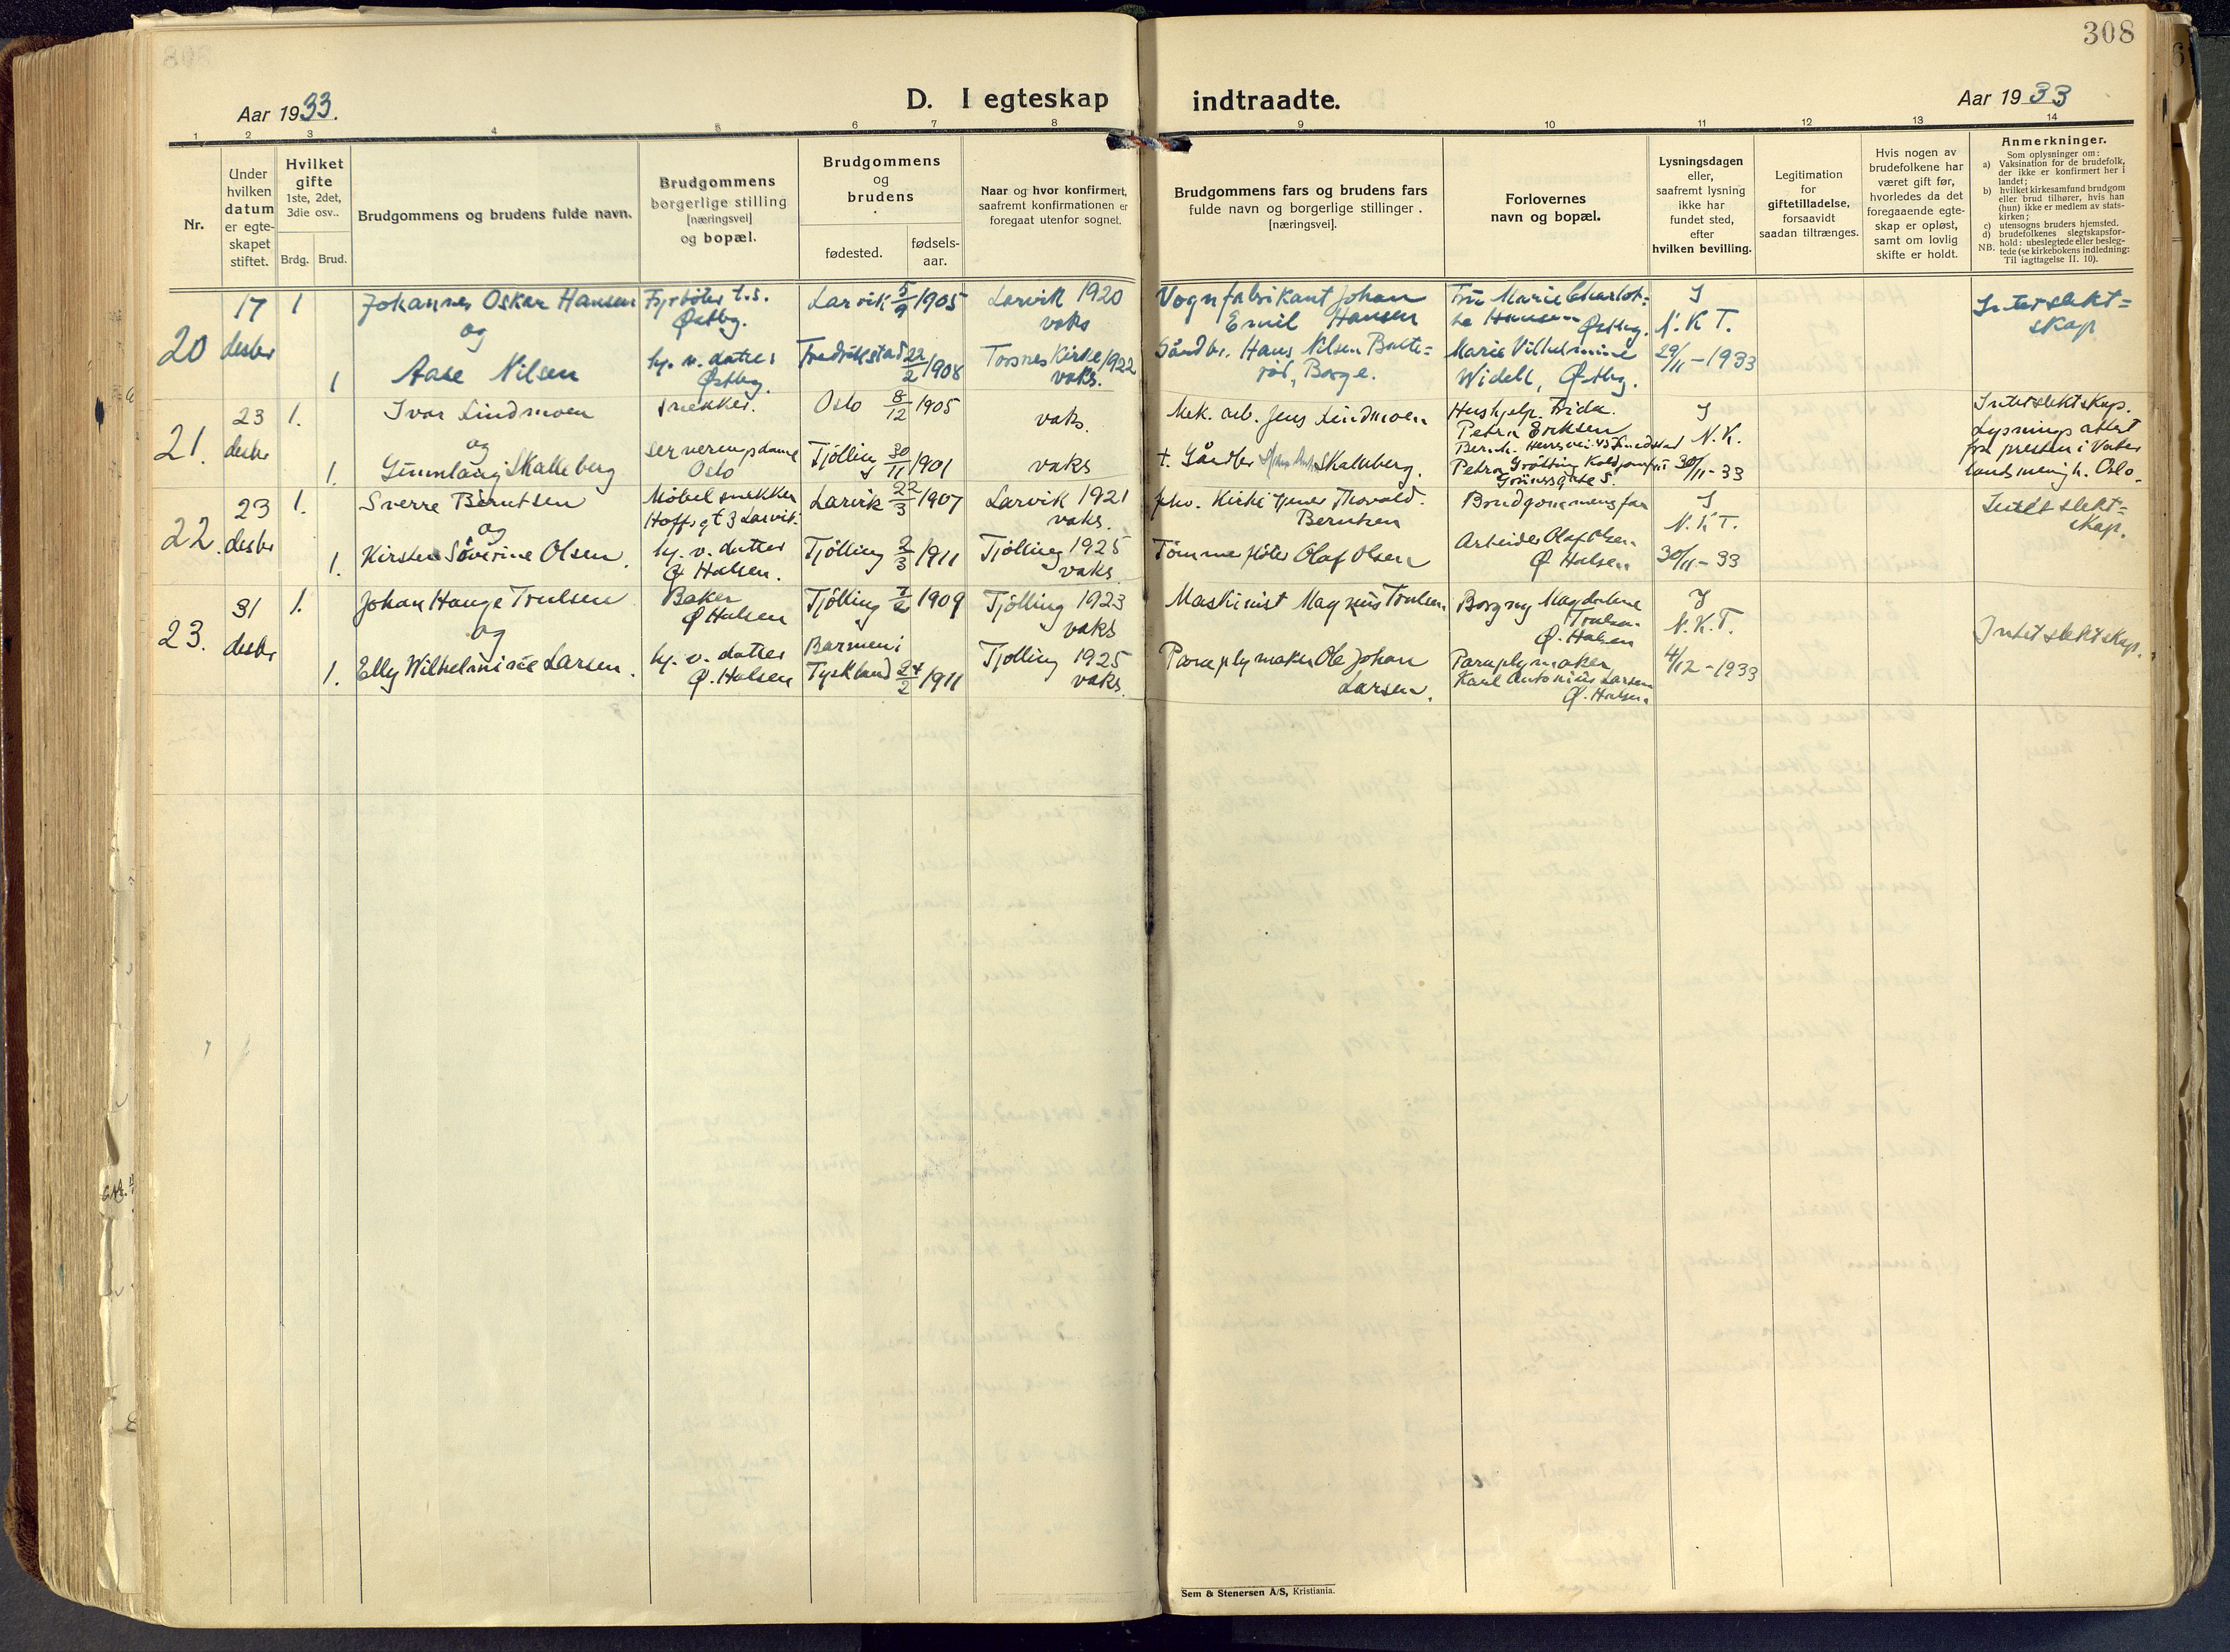 308
Aar 1933.
D. I egteskap indtraadte.
Aar 1933
1 2 3 4 5 6 7 8 9 10 11 12 13 14
Nr.
Under
hvilken
datum
er egte-
skapet
stiftet.
Hvilket
gifte
1ste, 2det,
3die osv..
Brdg. Brud.
Brudgommens og brudens fulde navn.
Brudgommens
borgerlige stilling
[næringsvei]
og bopæl.
Brudgommens
og
brudens
fødested.
fødsels-
aar.
Naar og hvor konfirmert,
saafremt konfirmationen er
foregaat utenfor sognet.
Brudgommens fars og brudens fars
fulde navn og borgerlige stillinger.
[næringsvei].
Forlovernes
navn og bopæl.
Lysningsdagen
eller,
saafremt lysning
ikke har
fundet sted,
efter
hvilken bevilling.
Legitimation
for
giftetilladelse,
forsaavidt
saadan tiltrænges.
Hvis nogen av
brudefolkene har
været gift før,
hvorledes da det
foregaaende egte-
skap er opløst,
samt om lovlig
skifte er holdt.
Anmerkninger.
Som oplysninger om:
a) Vaksination for de brudefolk,
der ikke er konfirmert her i
landet;
b) hvilket kirkesamfund brudgom
eller brud tilhører, hvis han
(hun) ikke er medlem av stats-
kirken;
c) utensogns bruders hjemsted.
d) brudefolkenes slegtskapsfor-
hold: ubeslegtede eller besleg-
NB. tede (se kirkebokens indledning:
Til iagttagelse II. 10).
20
17
desbr
1
1
Johannes Oskar Hansen
og
Aase Nilsen
Fyrbøter t.s.
Østby.
hj. v. datter
Østby.
Larvik 5/9 1905
Fredrikstad 22/2 1908
Larvik 1920
vaks
Torsnes Kirke 1922
vaks.
Vognfabrikant Johan
Emil Hansen
Gårdbr. Hans Nilsen
Borge.
Fru Marie Charlot-
te Hansen Østby.
Marie Vilhelmine
Widell, Østby.
I
N. K T.
29/11-1933
Intet slekt=
skap
21.
23
desbr
1.
1.
Ivar Lindmoen
og
Gunnlaug Skalleberg
snekker.
serveringsdame
Oslo
Oslo 8/12 1905
Tjølling 30/11 1901
vaks.
vaks
Mek. arb. Jens Lindmoen
t. Gårdbr Skalleberg.
Hushjelp. Frida.
Petra Eriksen
Petra
I
N. K.
30/11-33
Intet slektskap.
Lysnings attest
fra presten i Vater
lands menigh. Oslo.
22.
23
desbr
1.
1.
Sverre Berntsen
og
Kirsten Severine Olsen.
Møbelsnekker
Hoffsgt 3 Larvik.
hj. v. datter
Ø Halsen.
Larvik 22/3 1907
Tjølling 2/3 1911
Larvik 1921
vaks.
Tjølling 1925
vaks.
Kirketjener Thorvald.
Berntsen
Tømmerfløter Olaf Olsen
Brudgommens far
Arbeider Olaf Olsen
Ø Halsen
I
N. K T.
30/11-33
Intet slekt=
skap.
23.
31
desbr
1.
1.
Johan Hauge Trulsen
og
Elly Wilhelmine Larsen.
Baker
Ø Halsen
hj. v. datter
Ø. Halsen
Tjølling 1909
Barmen i
Tyskland 24/2 1911
Tjølling 1923
vaks
Tjølling 1925
vaks.
Maskinist Magnus Trulsen
Paraplymaker Ole Johan
Larsen.
Borgny Magdalene
Trulsen
Ø. Halsen
Paraplymaker
Karl Antonius Larsen
Ø. Halsen
I
N. K. T.
4/12-1933
Intet slektskap.
Sem & Stenersen A/S, Kristiania.